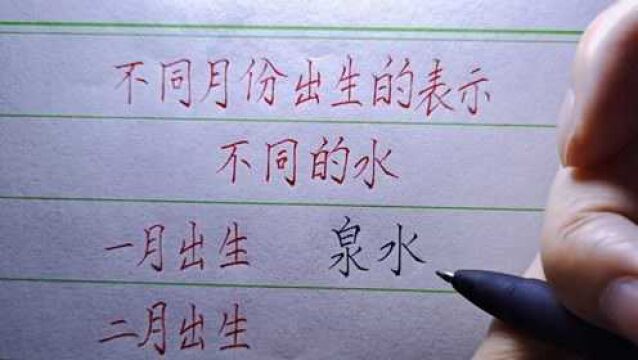 不同月份出生的表示
不同的水
一月出生 泉水
二月出生